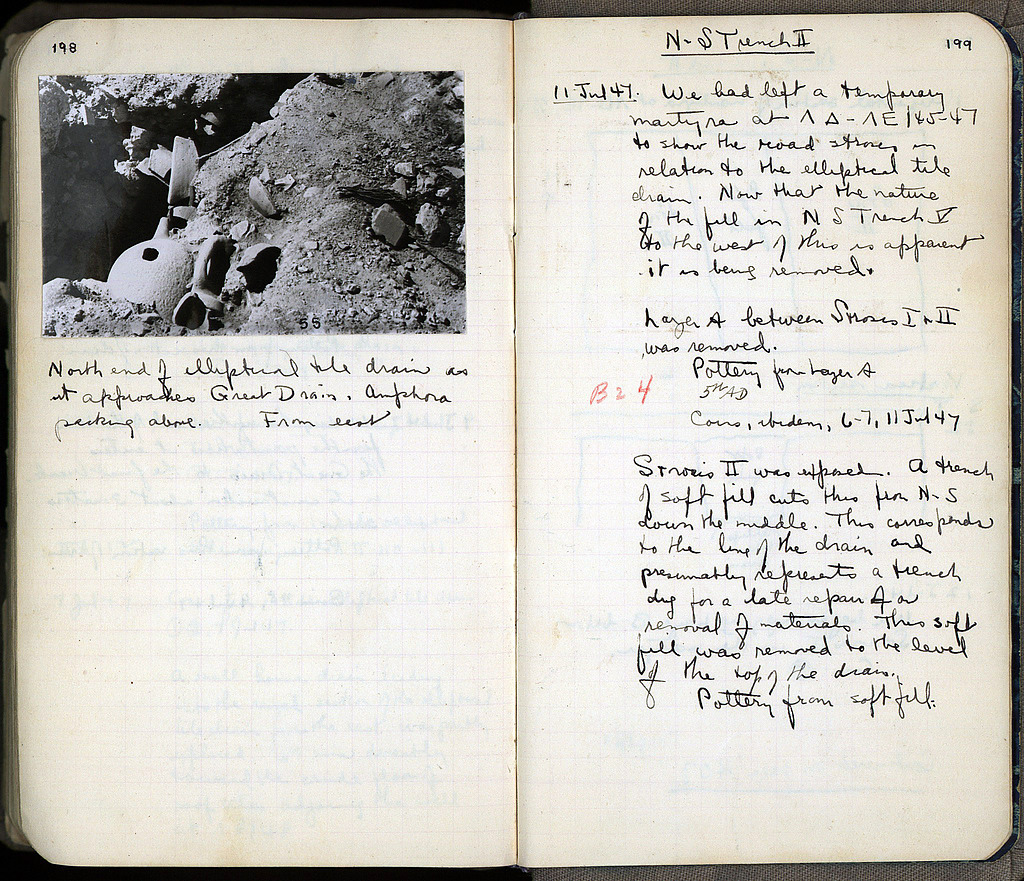 198
55
North end of elliptical tile drain as
it approaches Great Drain. Amphora
packing above. From east
199
N-S Trench II
11 Jul 47. We had left a temporary
martyra at ΛΔ-ΛΕ/45-47
to show the road stroses in
relation to the elliptical tile
drain. Now that the nature
of the fill in N S Trench V
to the west of this is apparent
it is being removed.
Layer A between Stroses I & II
was removed.
Pottery from Layer A
B 24
5th AD
Coins, ibidem, 6-7, 11 Jul 47
Strosis II was exposed. A trench
of soft fill cuts this from N-S
down the middle. This corresponds
to the line of the drain and
presumably represents a trench
dug for a late repair or
removal of materials. This soft
fill was removed to the level
of the top of the drain.
Pottery from soft fill: